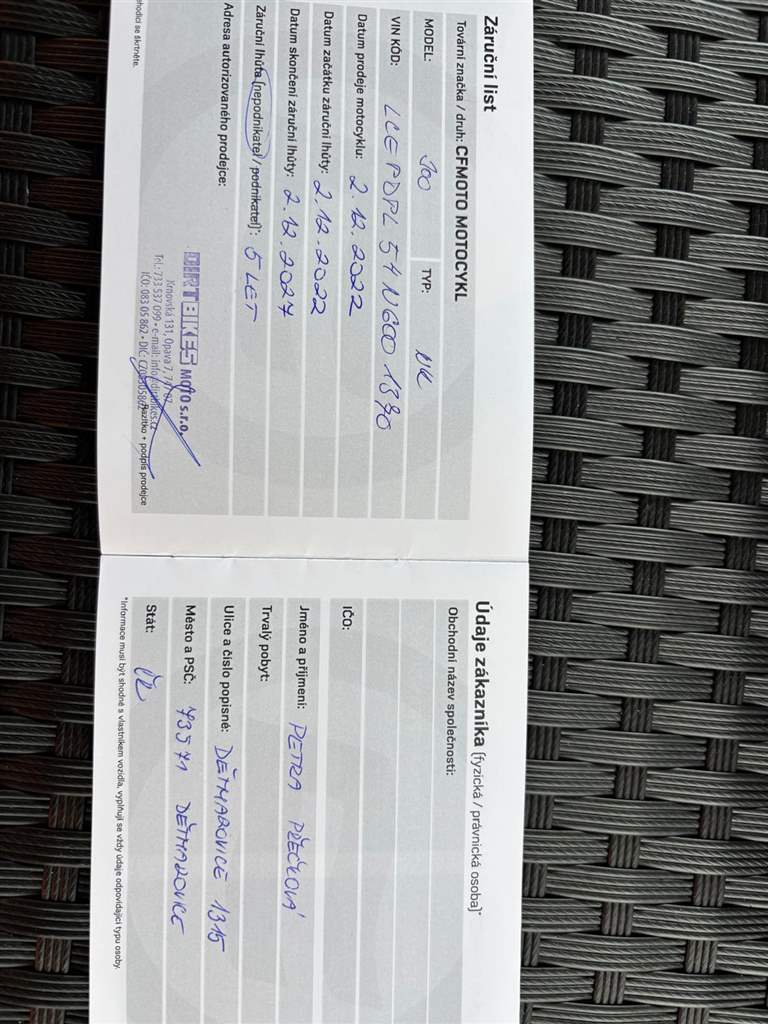 Záruční list
Tovární značka / druh: CFMOTO MOTOCYKL
MODEL: 300 TYP: NK
VIN KÓD: LCEPDPL57N6001390
Datum prodeje motocyklu: 2.12.2022
Datum začátku záruční lhůty: 2.12.2022
Datum skončení záruční lhůty: 2.12.2027
Záruční lhůta (nepodnikatel / podnikatel)*: 5 LET
Adresa autorizovaného prodejce:
DIRTBIKES MOTO s.r.o.
Krnovská 131, Opava 7, 747 07
Tel.: 733 537 099 • e-mail: info@dirtbikes.cz
IČO: 083 05 862 • DIČ: CZ08305862
Razítko + podpis prodejce
hodící se škrtněte.
Údaje zákazníka (fyzická / právnická osoba)*
Obchodní název společnosti:
IČO:
Jméno a příjmení: PETRA
Trvalý pobyt:
Ulice a číslo popisné: DĚTMAROVICE 1315
Město a PSČ: 73571 DĚTMAROVICE
Stát: ČR
*Informace musí být shodné s vlastníkem vozidla, vyplňují se vždy údaje odpovídající typu osoby.